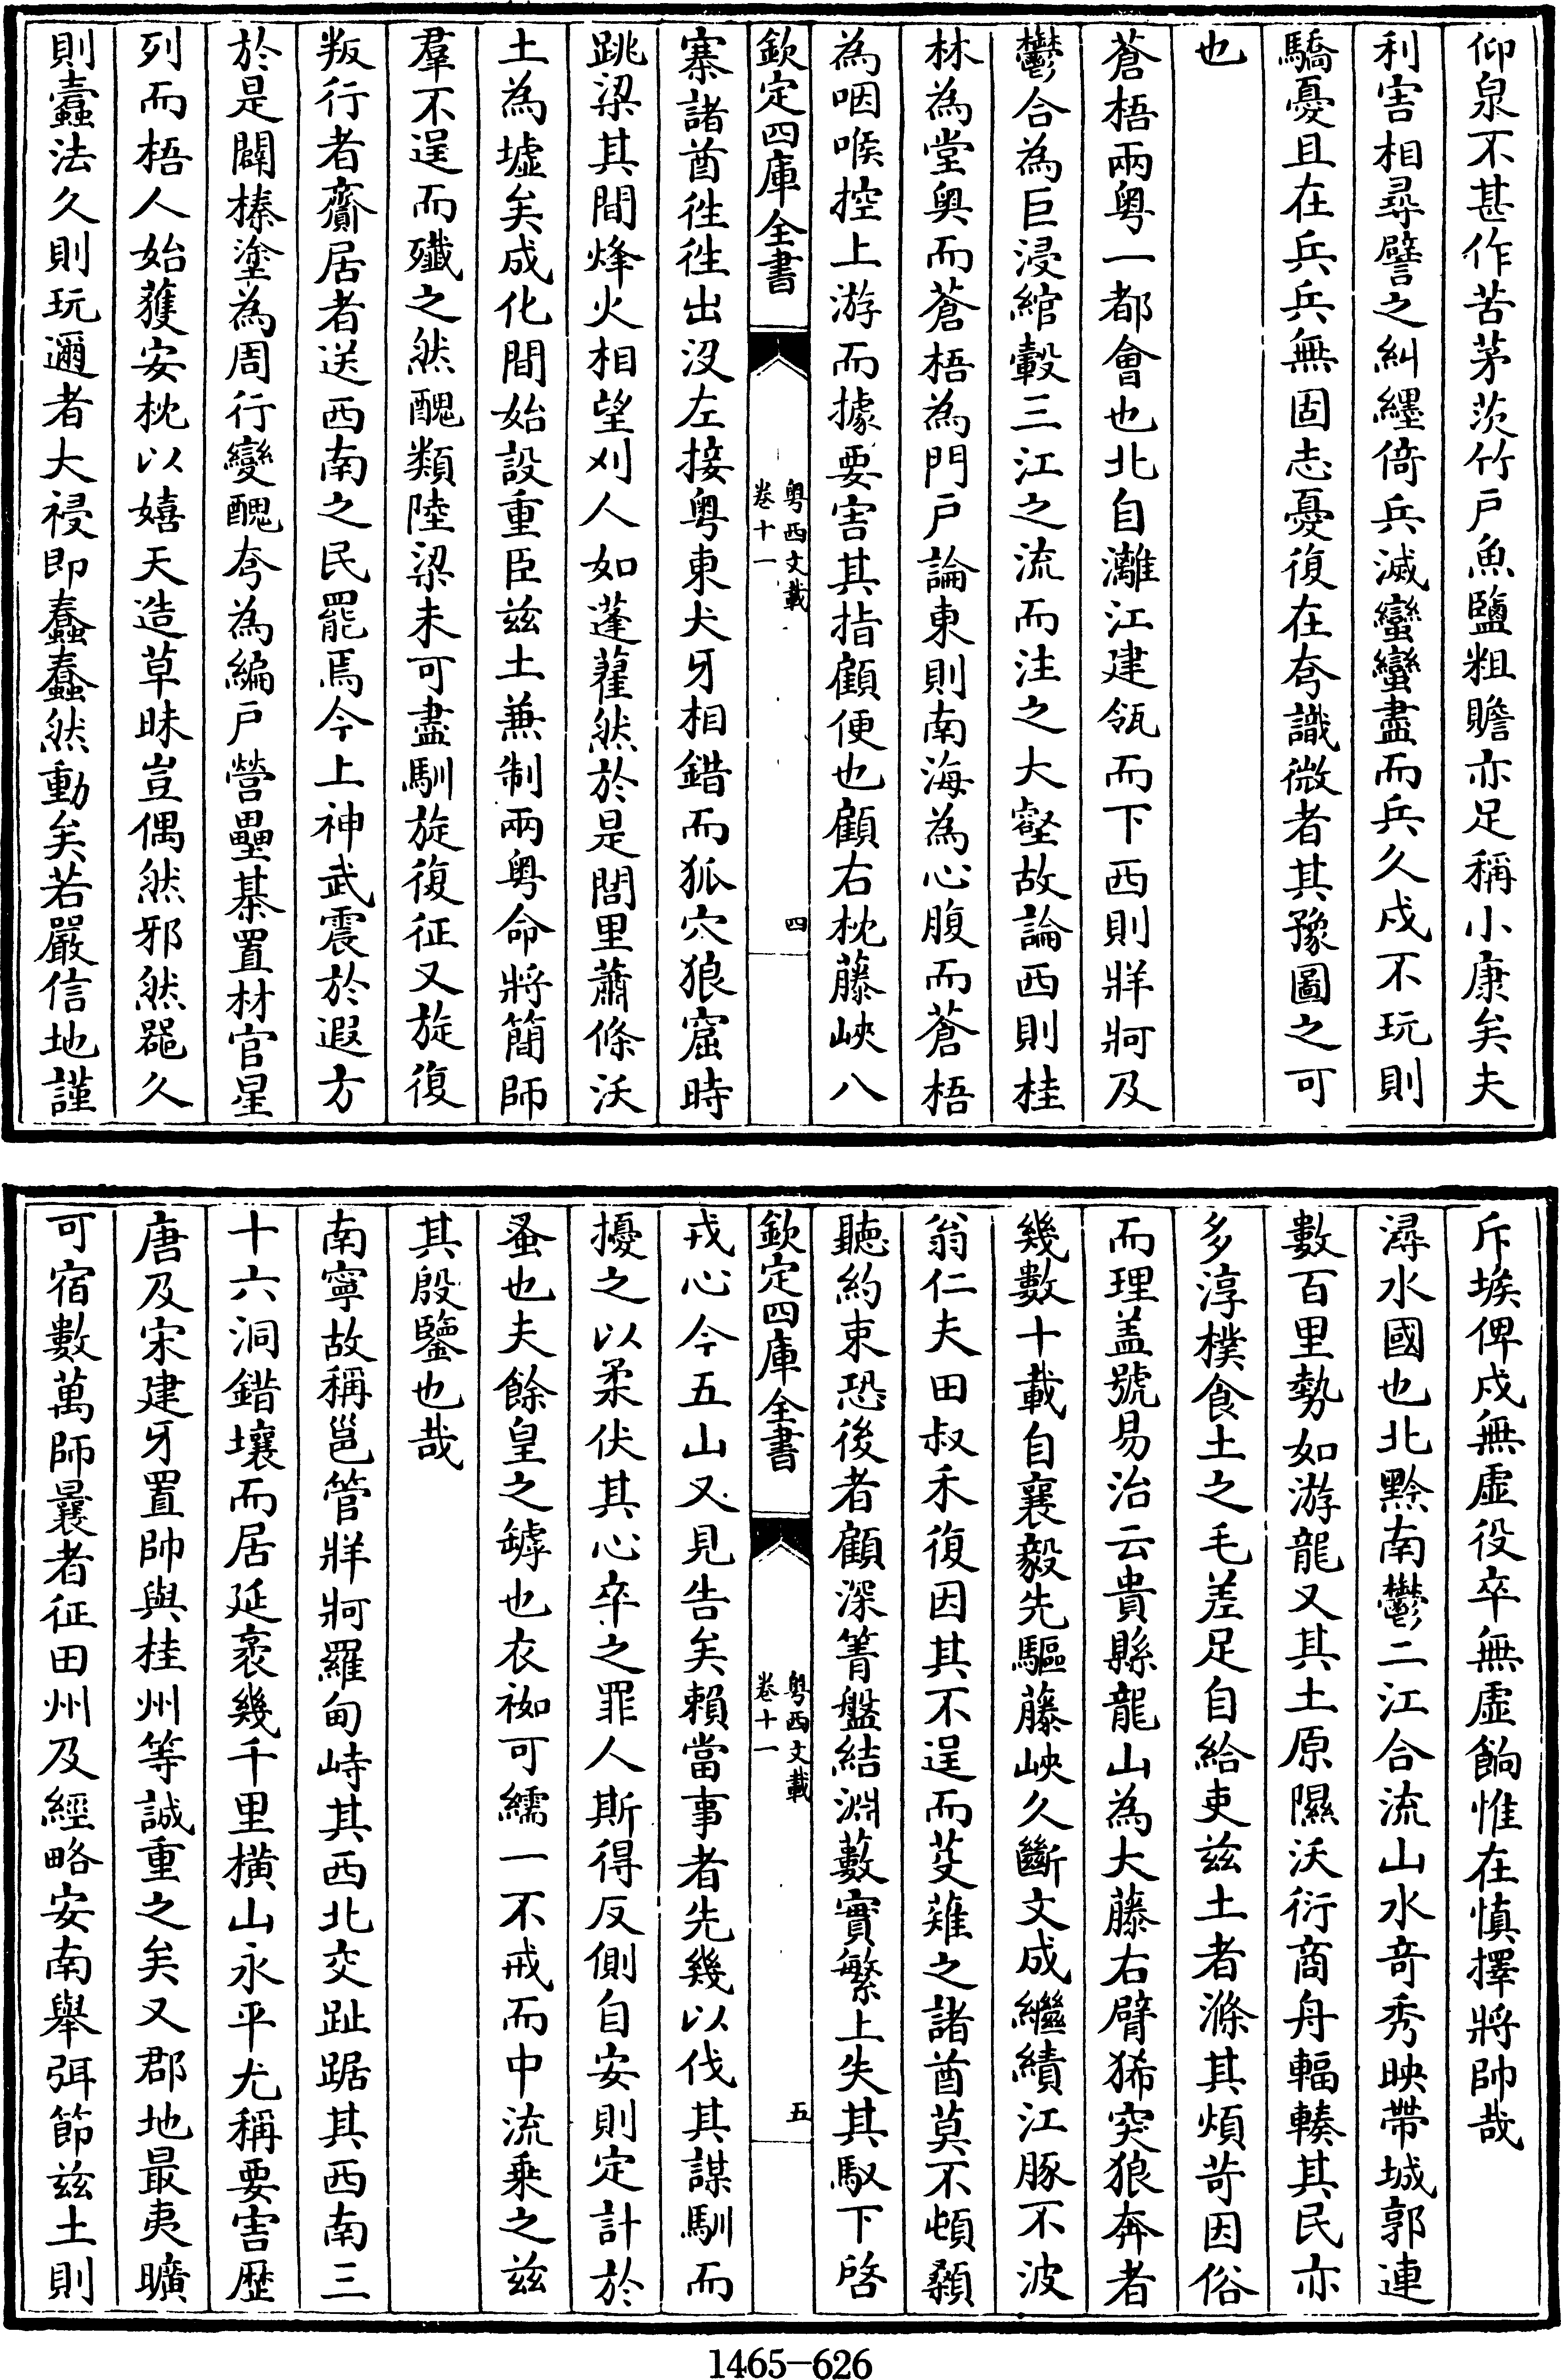 仰泉不甚作苦茅茨竹戶魚鹽粗贍亦足稱小康矣夫
利害相尋譬之糾纆倚兵滅蠻蠻盡而兵久戍不玩則
驕憂且在兵兵無固志憂復在夸識微者其豫圖之可
也
蒼梧兩粤一都會也北自灕江建瓴而下西則牂牁及
鬱合為巨浸綰轂三江之流而注之大壑故論西則桂
林為堂奥而蒼梧為門戶論東則南海為心腹而蒼梧
為咽喉控上游而據要害其指顧便也顧右枕藤峽八
欽定四庫全書
粤西文載
卷十一
四
寨諸酋徃徃出没左接粤東犬牙相錯而狐穴狼窟時
跳梁其間烽火相望刈人如蓬藋然於是閭里蕭條沃
土為墟矣成化間始設重臣兹土兼制兩粤命將簡師
羣不逞而殲之然醜類陸梁未可盡馴旋復征又旋復
叛行者齎居者送西南之民罷焉今上神武震於遐方
於是闢榛塗為周行變醜夸為編戶營壘棊置材官星
列而梧人始獲安枕以嬉天造草昧豈偶然邪然罷久
則蠧法久則玩邇者大祲即蠢蠢然動矣若嚴信地謹
斥堠俾戍無虚役卒無虚餉惟在慎擇將帥哉
潯水國也北黔南鬱二江合流山水奇秀映帶城郭連
數百里勢如游龍又其土原隰沃衍商舟輻輳其民亦
多淳樸食土之毛差足自給吏兹土者滌其煩苛因俗
而理盖號易治云貴縣龍山為大藤右臂狶突狼奔者
幾數十載自襄毅先驅藤峽久斷文成繼績江豚不波
翁仁夫田叔禾復因其不逞而芟薙之諸酋莫不頓顙
聽約束恐後者顧深箐盤結淵藪實繁上失其馭下啓
欽定四庫全書
粤西文載
卷十一
五
戎心今五山又見告矣賴當事者先幾以伐其謀馴而
擾之以柔伏其心卒之罪人斯得反側自安則定計於
蚤也夫餘皇之罅也衣袽可繻一不戒而中流乘之兹
其殷鑒也哉
南寧故稱邕管牂牁羅甸峙其西北交趾踞其西南三
十六洞錯壤而居延袤幾千里橫山永平尤稱要害歷
唐及宋建牙置帥與桂州等誠重之矣又郡地最夷曠
可宿數萬師曩者征田州及經略安南舉弭節兹土則
1465-626